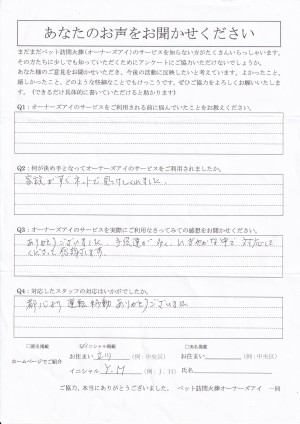 あなたのお声をお聞かせください
まだまだペット訪問火葬(オーナーズアイ)のサービスを知らない方がたくさんいらっしゃいます。
その方たちに少しでも知っていただくためにアンケートにご協力いただけないでしょうか。
あなた様のご意見をお聞かせいただき、今後の活動に反映したいと考えています。よかったこと、
嬉しかったこと、どのような些細なことでもけっこうです。ぜひご協力をよろしくお願いいたしま
す。(できるだけ具体的に書いていただけると助かります)
Q1:オーナーズアイのサービスをご利用される前に悩んでいたことをお教えください。
Q2:何が決め手となってオーナーズアイのサービスをご利用されましたか。
家族がすぐネットで見つけてくれました。
Q3:オーナーズアイのサービスを実際にご利用なさってみての感想をお聞かせください。
ありがとうございました。子供達が 中で 対応して
くださって感謝です。
Q4:対応したスタッフの対応はいかがでしたか。
都心より 運転 移動 ありがとうございました
□匿名掲載 イニシャル掲載 □実名掲載
お住まい 立川 (例:中央区) お住まい (例:中央区)
ホームページでご紹介
イニシャル Y.M (例:J.H) 氏名
ご協力、本当にありがとうございました。 ペット訪問火葬オーナーズアイ 一同